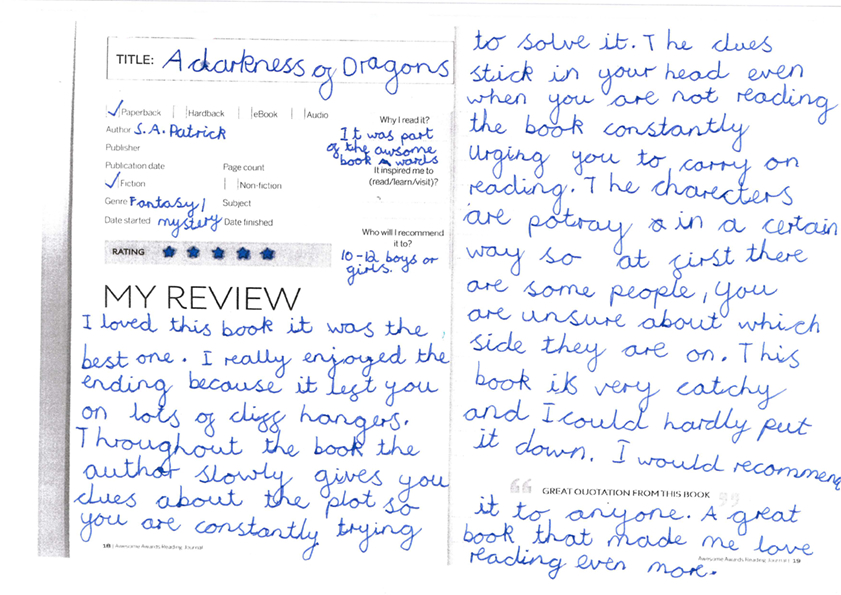 TITLE: A darkness of Dragons
Paperback Hardback eBook Audio
Author S.A. Patrick
Publisher
Publication date Page count
Fiction Non-fiction
Genre Fantasy/ Subject
mystery
Date started Date finished
RATING
Why I read it?
It was part
of the awsome
book awards
It inspired me to
(read/learn/visit)?
Who will I recommend
it to?
10-12 boys or
girls.
MY REVIEW
I loved this book it was the
best one. I really enjoyed the
ending because it left you
on lots of cliff hangers.
Throughout the book the
author slowly gives you
clues about the plot so
you are constantly trying
18 | Awesome Awards Reading Journal
to solve it. The clues
stick in your head even
when you are not reading
the book constantly
urging you to carry on
reading. The charecters
are potray in a certain
way so at first there
are some people, you
are unsure about which
side they are on. This
book is very catchy
and I could hardly put
it down. I would recommend
GREAT QUOTATION FROM THIS BOOK
it to anyone. A great
book that made me love
reading even more.
Awesome Awards Reading Journal | 19